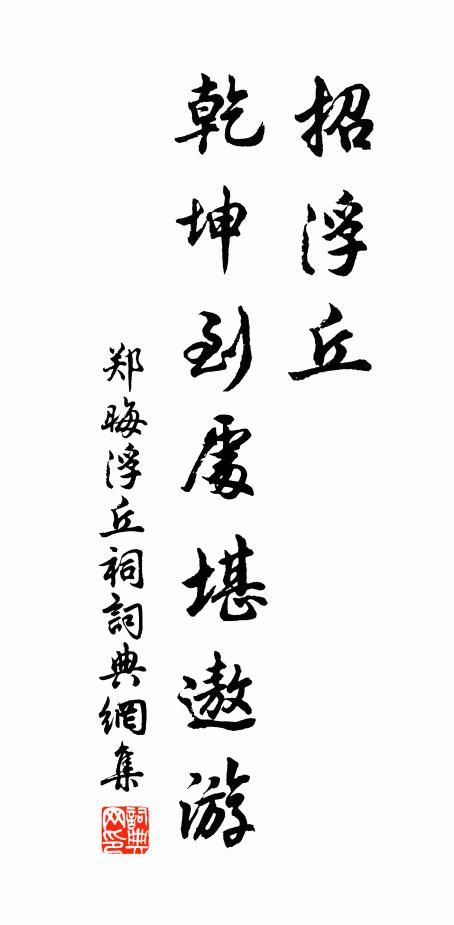 招浮丘
乾坤到處堪遨游
郑晦浮丘祠詞典網集
詞典网印